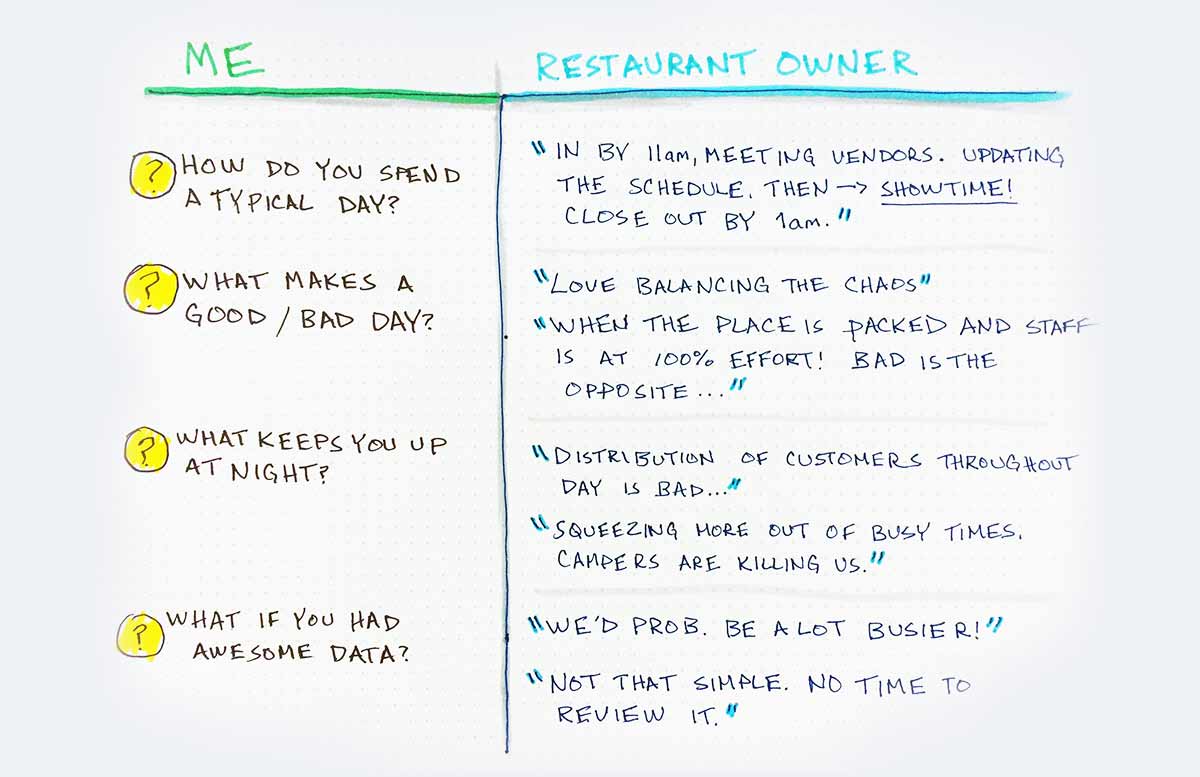 ME
RESTAURANT OWNER
?
HOW DO YOU SPEND
A TYPICAL DAY?
"IN BY 11am, MEETING VENDORS. UPDATING
THE SCHEDULE. THEN → SHOWTIME!
CLOSE OUT BY 1am."
?
WHAT MAKES A
GOOD / BAD DAY?
"LOVE BALANCING THE CHAOS"
"WHEN THE PLACE IS PACKED AND STAFF
IS AT 100% EFFORT! BAD IS THE
OPPOSITE..."
?
WHAT KEEPS YOU UP
AT NIGHT?
"DISTRIBUTION OF CUSTOMERS THROUGHOUT
DAY IS BAD..."
"SQUEEZING MORE OUT OF BUSY TIMES.
CAMPERS ARE KILLING US."
?
WHAT IF YOU HAD
AWESOME DATA?
"WE'D PROB. BE A LOT BUSIER!"
"NOT THAT SIMPLE. NO TIME TO
REVIEW IT."